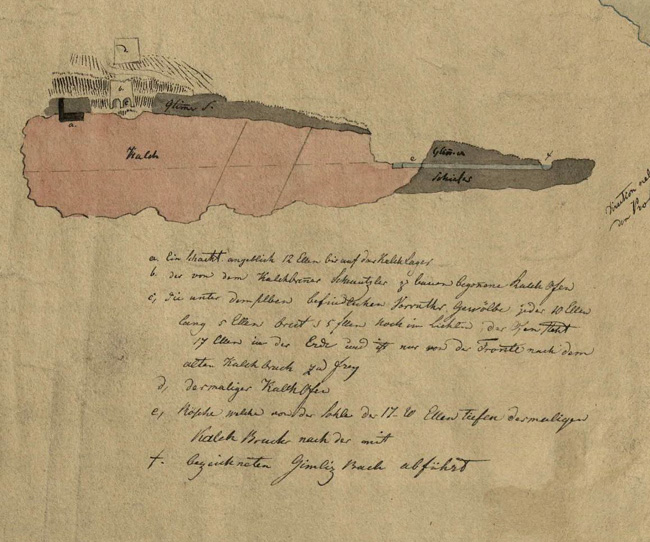 2
b
a.
Glimer S.
Kalch
e
Glimer
Schiefer
f
a. Ein Schacht angeblich 12 Ellen bis auf das Kalch lager
b. der von dem Kalchbrener zu bauen begonene Kalch Ofen
c, die unter demselben befindlichen Vorraths Gewölbe jeder 10 Ellen
lang 5 Ellen breit 5 Ellen hoch im Lichten; der Ofen steht
17 Ellen in der Erde und ist nur von der Fronte nach dem
alten Kalch bruch zu frey
d, dermaliger Kalch Ofen
e, Rösche welche von der Sohle des 17-20 Ellen tiefen dermaligen
Kalch Bruchs nach der mit
f. bezeichneten Gimliz Bach abführt